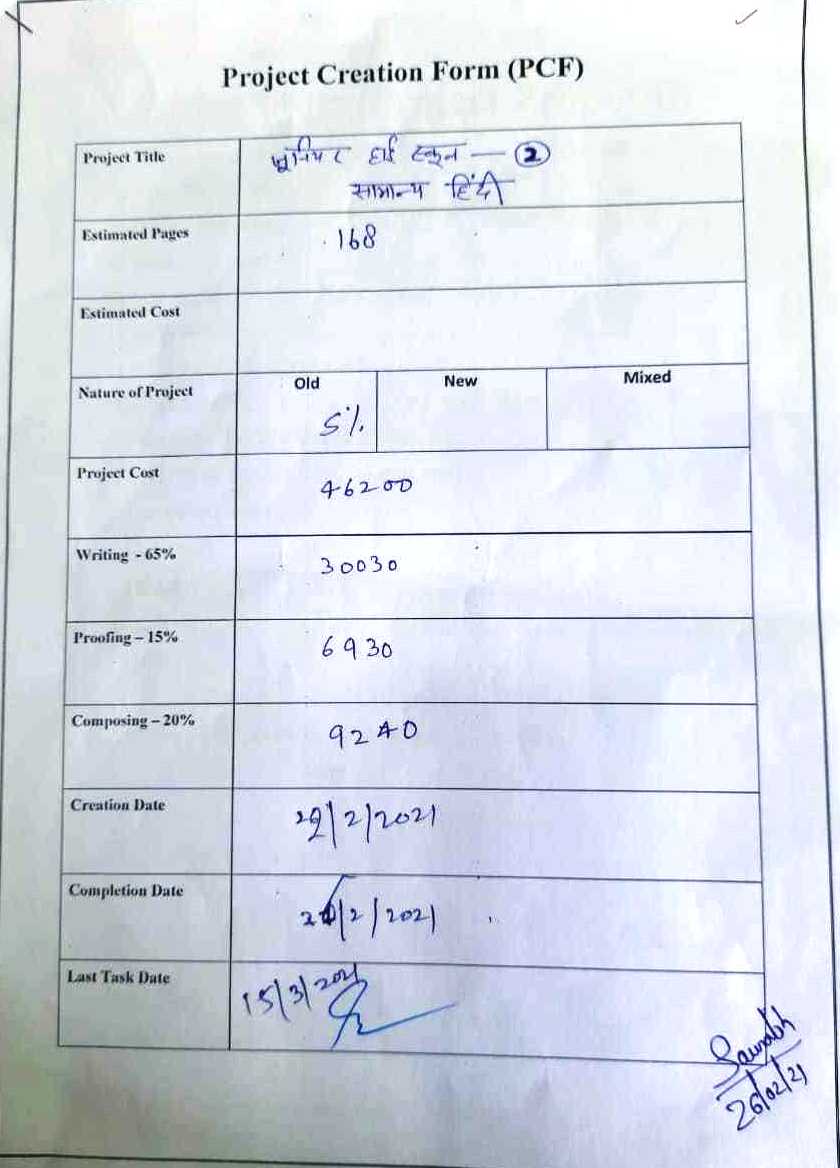 Project Creation Form (PCF)
Project Title
जूनियर हाई स्कूल — 2
सामान्य हिंदी
Estimated Pages
168
Estimated Cost
Nature of Project
Old New Mixed
5%
Project Cost
46200
Writing - 65%
30030
Proofing – 15%
6930
Composing – 20%
9240
Creation Date
/2/2021
Completion Date
/2/2021
Last Task Date
15/3/2021
Saurabh
26/02/21